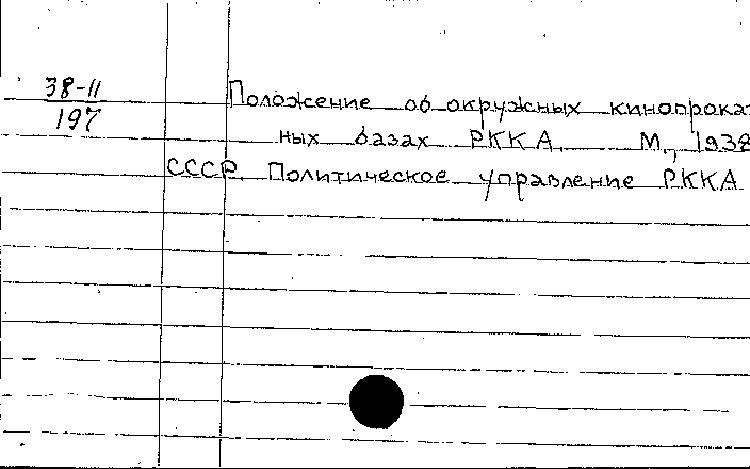 38-11
197
Положение об окружных кинопрокат
ных базах РККА. М., 1938
СССР. Политическое управление РККА